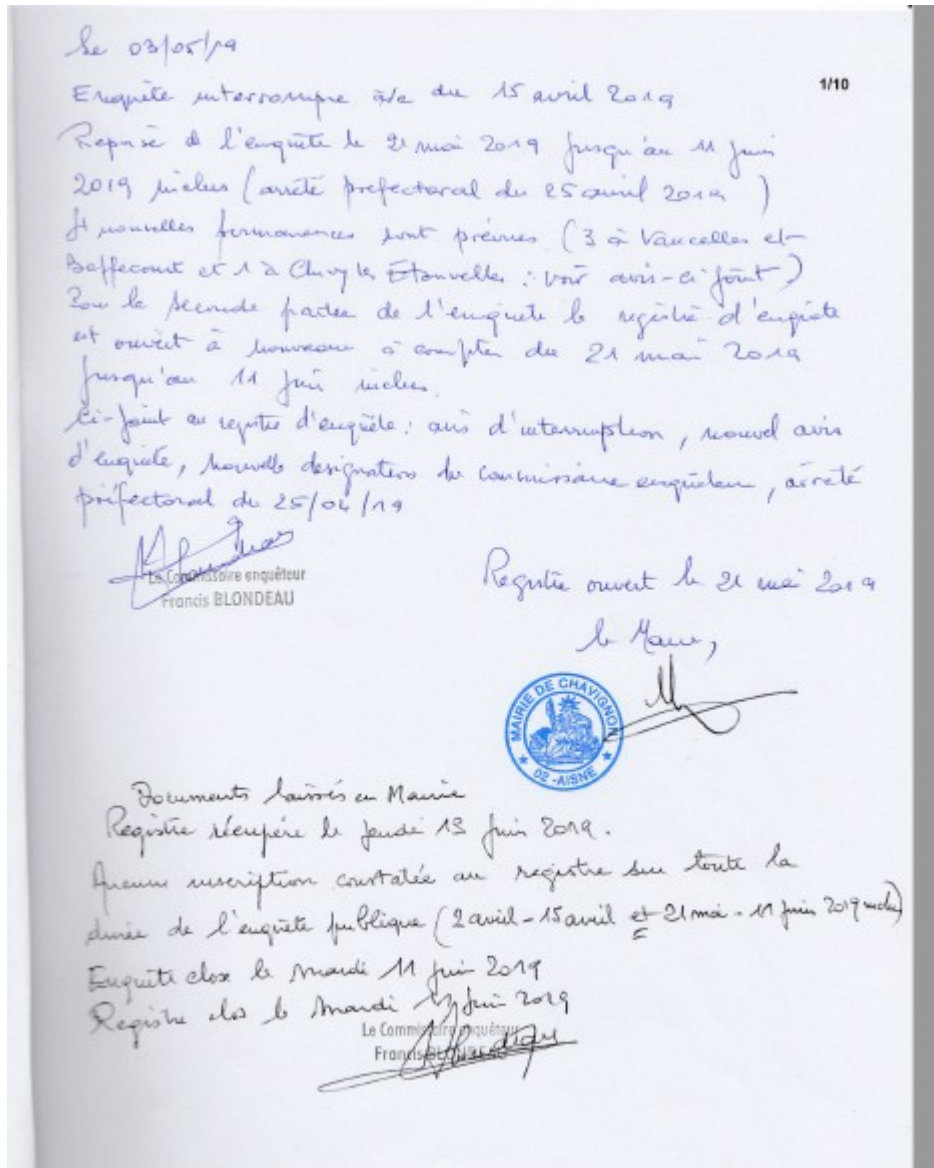 Le 03/05/19
1/10
Enquête interrompue a/c du 15 avril 2019
Reprise de l'enquête le 21 mai 2019 jusqu'au 11 juin
2019 inclus (arrêté préfectoral du 25 avril 2019)
4 nouvelles permanences sont prévues (3 à Vaucelles et-
Beffecourt et 1 à Chivy les Étouvelles : voir avis-ci joint)
Pour la seconde partie de l'enquête le registre d'enquête
est ouvert à nouveau à compter du 21 mai 2019
jusqu'au 11 juin inclus.
Ci-joint au registre d'enquête : avis d'interruption, nouvel avis
d'enquête, nouvelle désignation du commissaire enquêteur, arrêté
préfectoral du 25/04/19
Le Commissaire enquêteur
Francis BLONDEAU
Registre ouvert le 21 mai 2019
le Maire,
MAIRIE DE CHAVIGNON
02 - AISNE
Documents laissés en Mairie
Registre récupéré le jeudi 13 juin 2019.
Aucune inscription constatée au registre sur toute la
durée de l'enquête publique (2 avril - 15 avril et 21 mai - 11 juin 2019 inclus)
Enquête close le mardi 11 juin 2019
Registre clos le mardi juin 2019
Le Commissaire enquêteur
Francis BLONDEAU